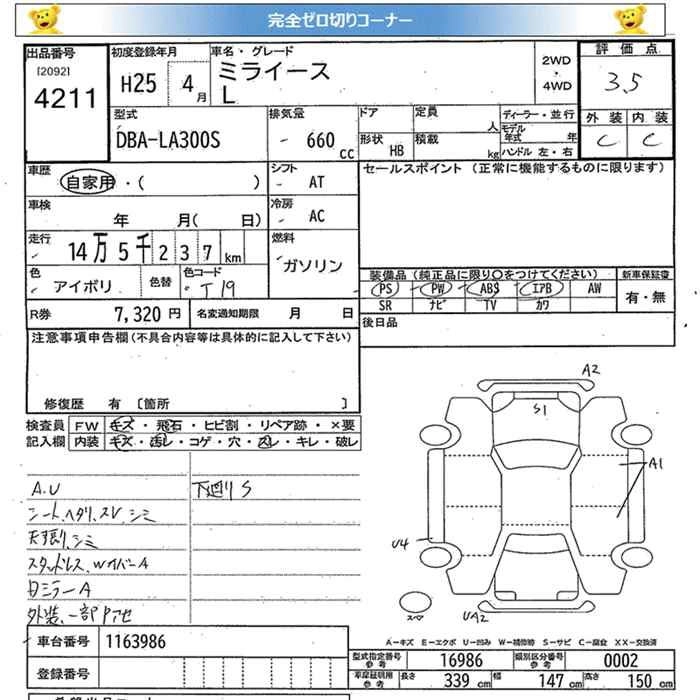 完全ゼロ切りコーナー
出品番号 初度登録年月 車名・グレード 評価点
[2092] 4211 H25 4月 ミライース L 2WD・4WD 3.5
型式 排気量 ドア 定員 人 ディーラー・並行 外装 内装
DBA-LA300S - 660cc 形状 HB 積載 kg モデル年式 年 ハンドル 左・右 C C
車歴 自家用・( ) シフト - AT セールスポイント (正常に機能するものに限ります)
車検 年 月( 日) 冷房 - AC
走行 14万5千237km 燃料 ガソリン
色 アイボリ 色替 色コード T19 装備品(純正品に限り〇をつけてください) 新車保証書
PS PW ABS エアB AW 有・無
R券 7,320円 名変通知期限 月 日 SR ナビ TV カワ
注意事項申告欄(不具合内容等は具体的に記入して下さい) 後日品
修復歴 有 [箇所 ]
検査員 FW キズ・飛石・ヒビ割・リペア跡・×要
記入欄 内装 キズ・汚レ・コゲ・穴・スレ・キレ・破レ
A.U 下廻リS
シート、ヘタリ、スレ、シミ
天張り、シミ
スタッドレス、WカバーA
日ミラーA
外装、一部アセ
A2
S1
A1
U4
スペア
UA2
A-キズ E-エクボ U-凹み W-補修跡 S-サビ C-腐食 XX-交換済
車台番号 1163986 型式指定番号 参考 16986 類別区分番号 参考 0002
登録番号 車庫証明用 参考 長さ 339cm 幅 147cm 高さ 150cm